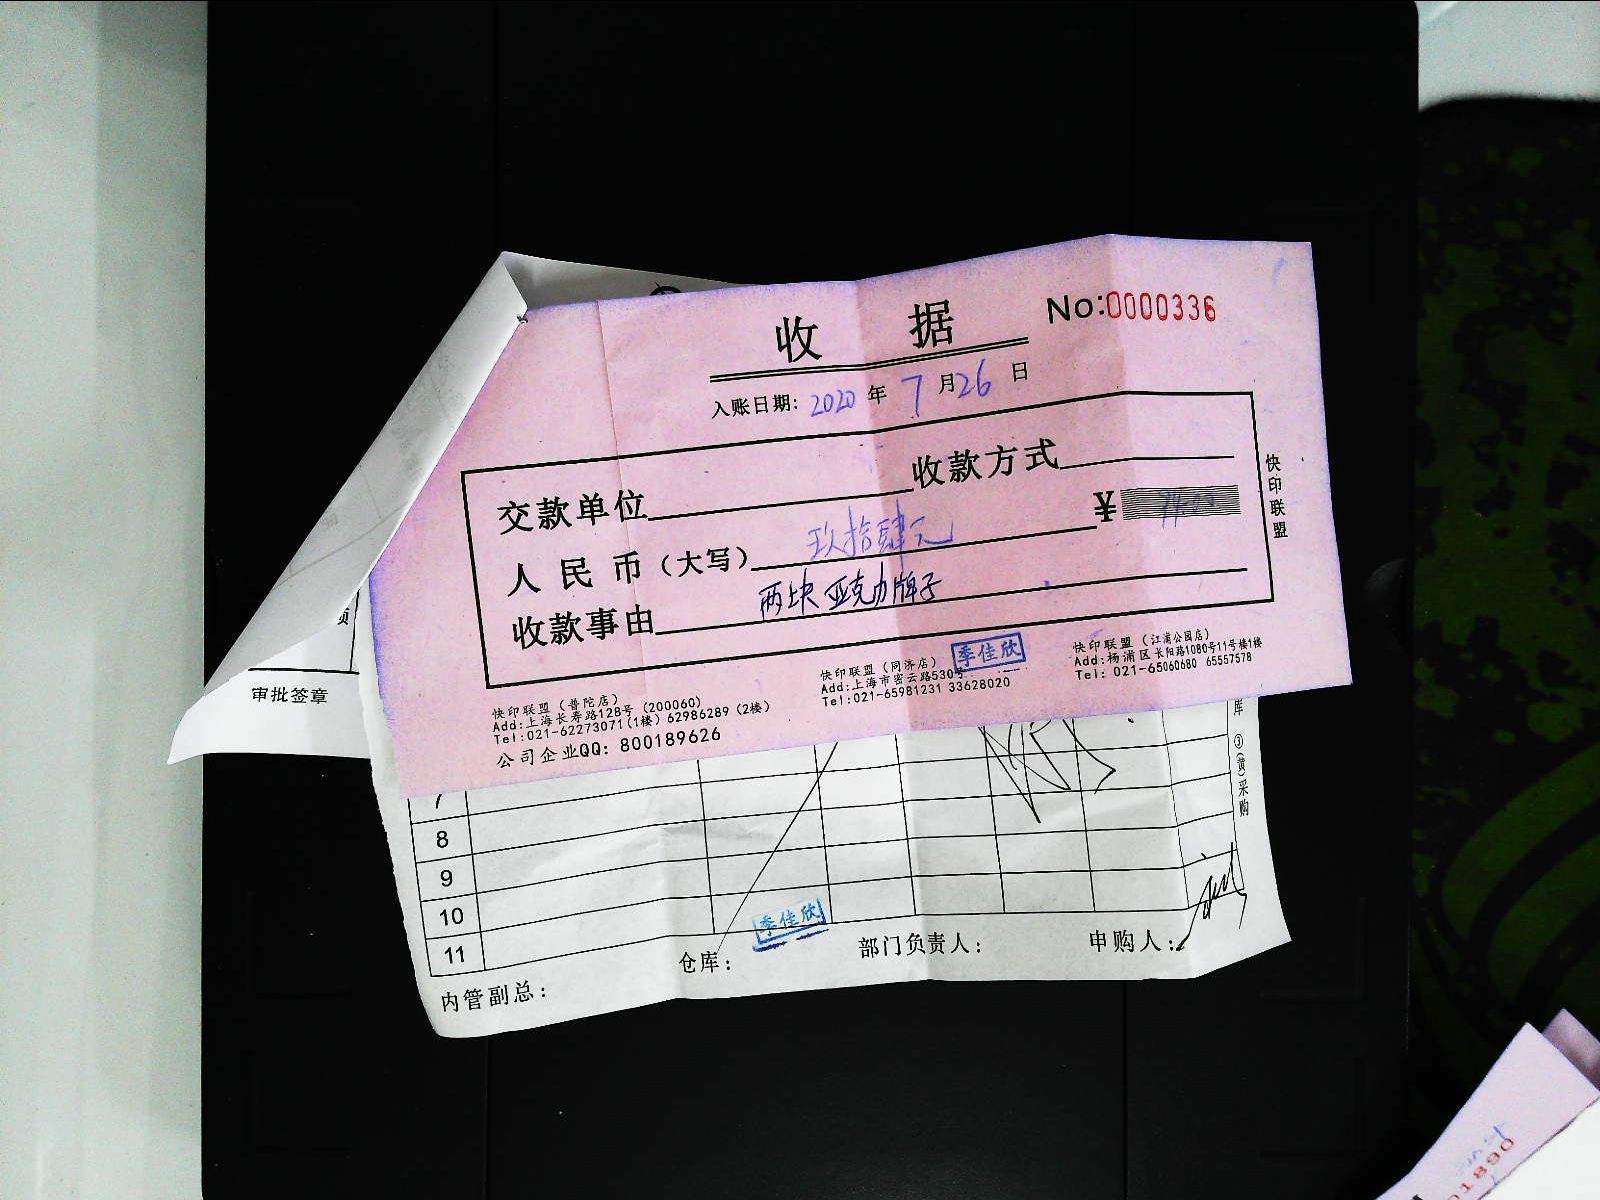 收 据
No:0000336
入账日期: 2020 年 7 月 26 日
交款单位
收款方式
人民币(大写) 玖拾肆元
¥
收款事由 两块亚克力牌子
快印联盟
快印联盟(普陀店)
Add:上海长寿路128号 (200060)
Tel:021-62273071(1楼) 62986289 (2楼)
公司企业QQ: 800189626
快印联盟(同济店)
Add:上海市密云路530号
Tel:021-65981231 33628020
季佳欣
快印联盟 (江浦公园店)
Add:杨浦区长阳路1080号11号楼1楼
Tel: 021-65060680 65557578
审批签章
库 ③(黄)采购
7
8
9
10
11
仓库:
季佳欣
部门负责人:
申购人:
内管副总:
1890